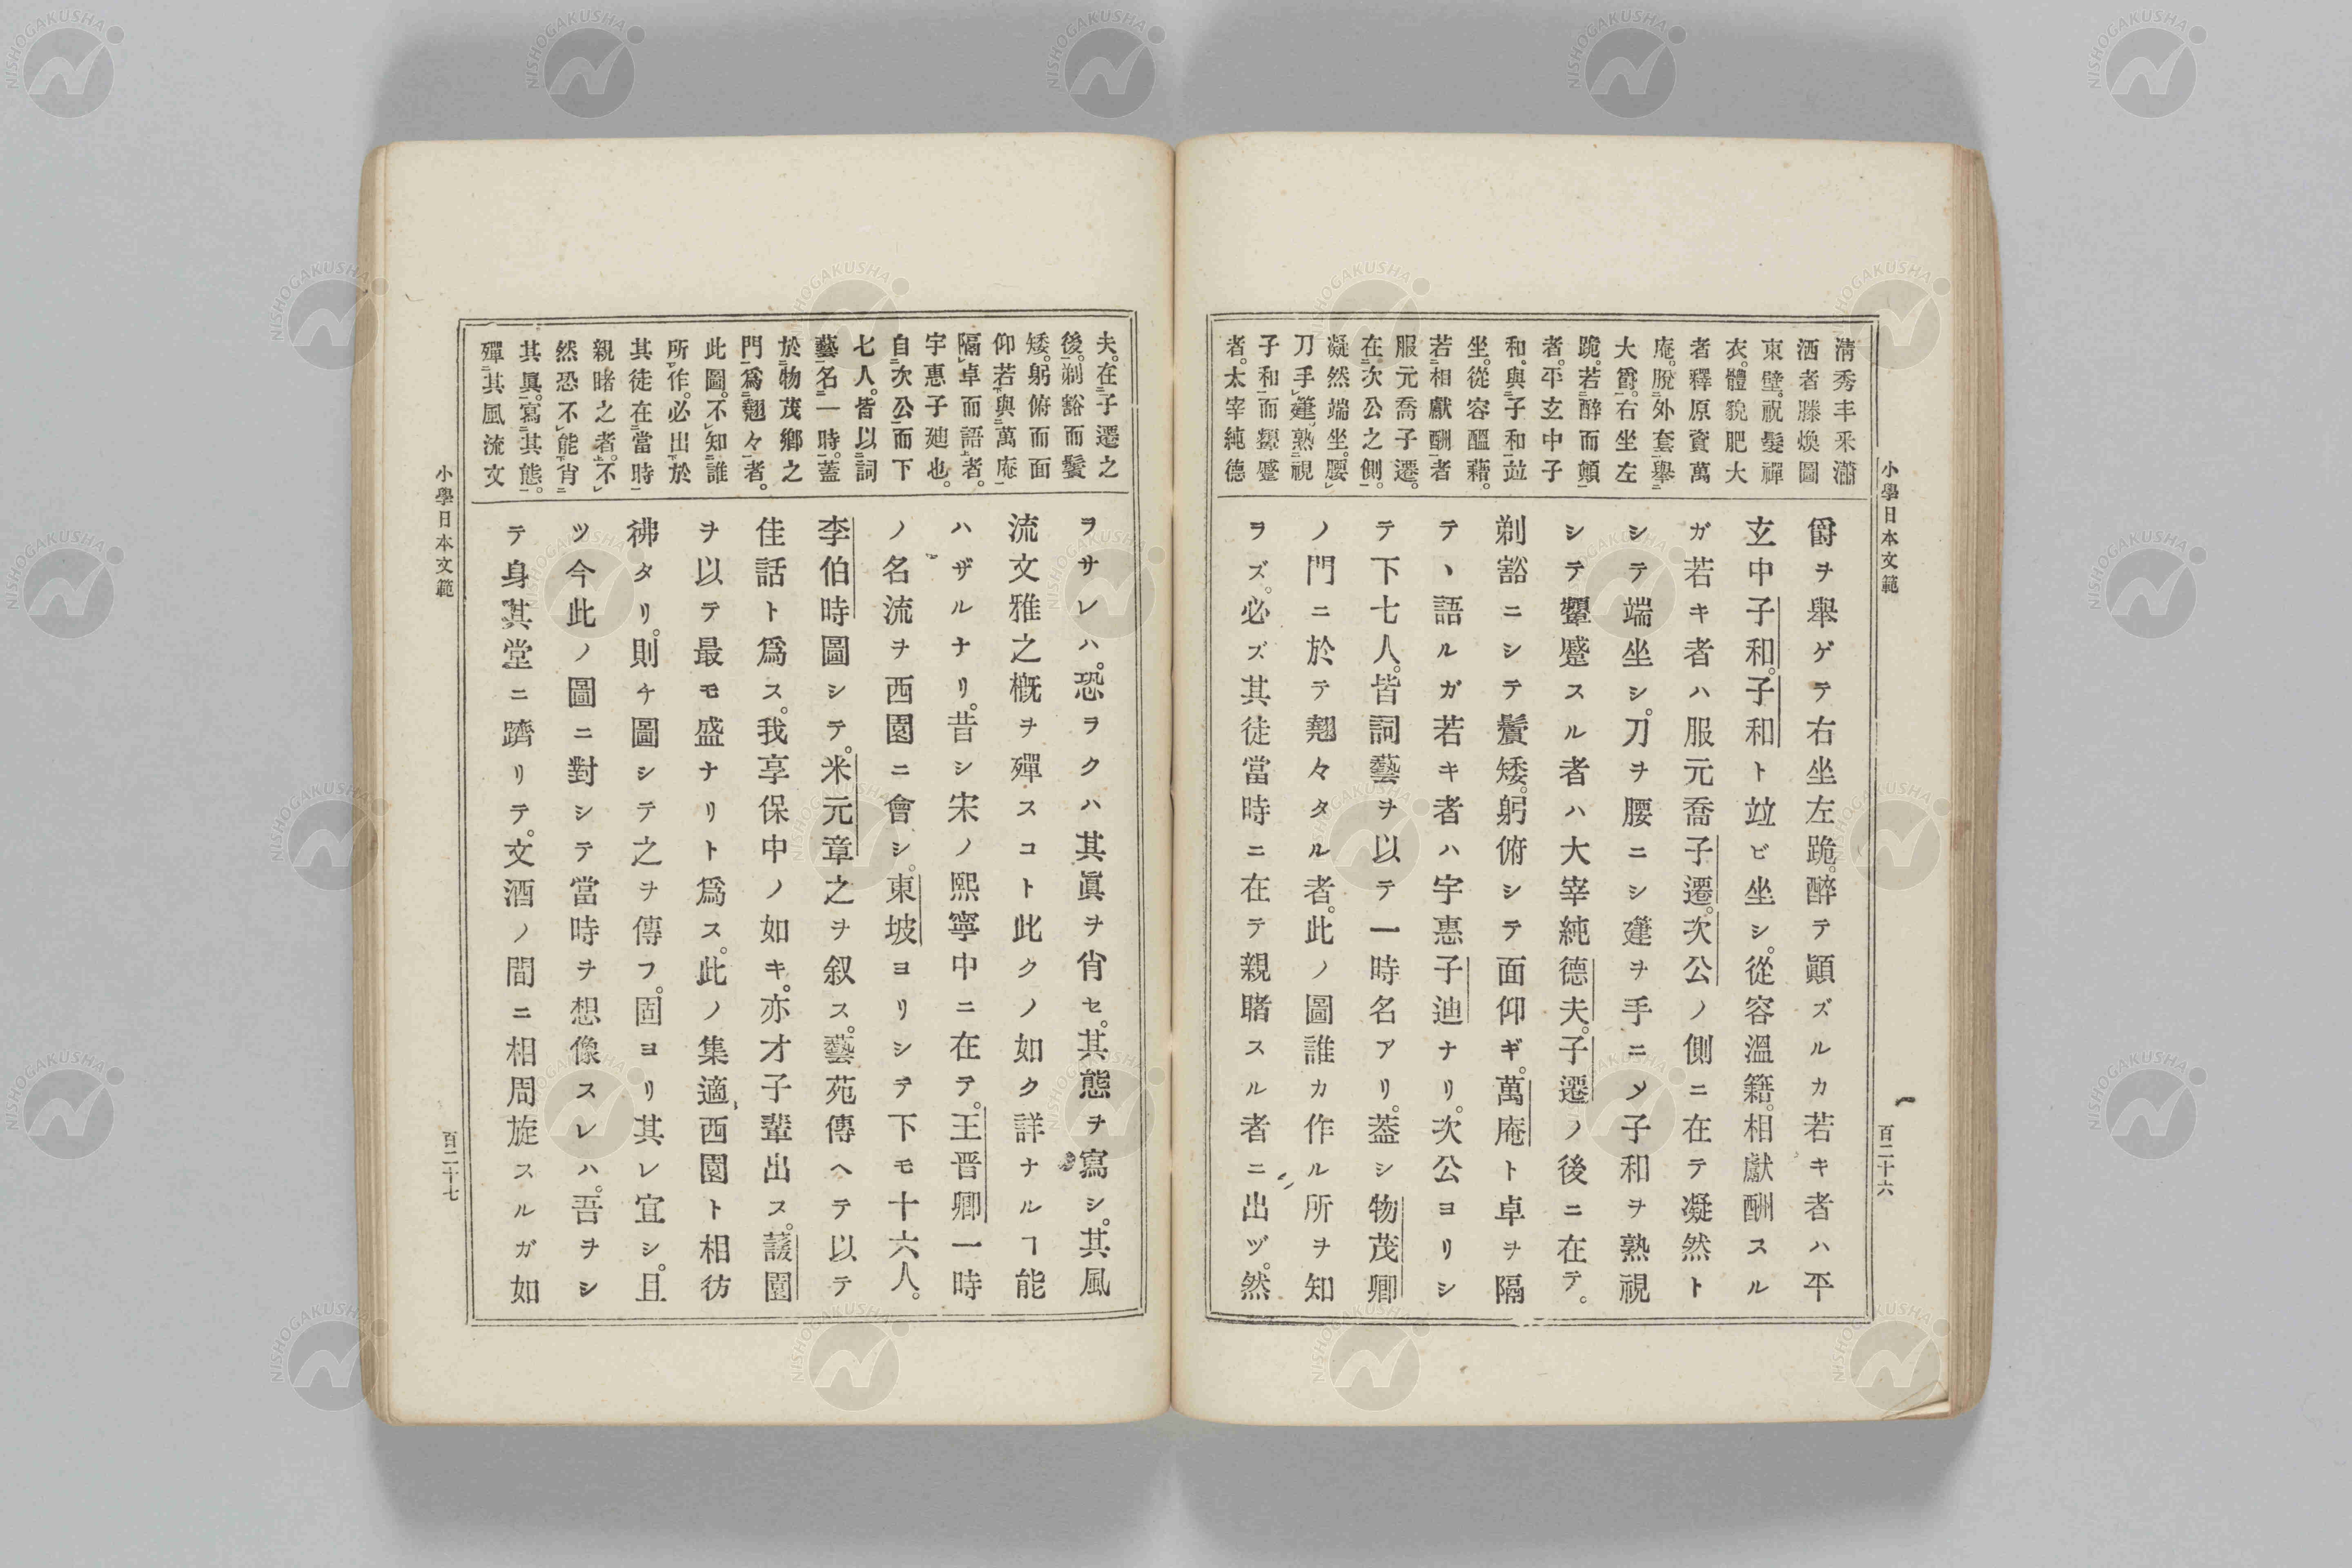 小學日本文範
百二十六
清秀丰采瀟
洒者滕煥圖
東壁。祝髮禪
衣。體貌肥大
者釋原資萬
庵。脫外套擧
大爵。右坐左
跪。若醉而顛
者。平玄中子
和。與子和竝
坐。從容醞藉。
若相獻酬者
服元喬子遷。
在次公之側。
凝然端坐。腰
刀手篷。熟視
子和而顰蹙
者。太宰純德
爵ヲ舉ゲテ右坐左跪。醉テ顚ズルカ若キ者ハ平
玄中子和。子和ト竝ビ坐シ。從容溫籍。相獻酬スル
ガ若キ者ハ服元喬子遷。次公ノ側ニ在テ凝然ト
シテ端坐シ。刀ヲ腰ニシ篷ヲ手ニメ子和ヲ熟視
シテ顰蹙スル者ハ大宰純德夫。子遷ノ後ニ在テ。
剃豁ニシテ鬢矮。躬俯シテ面仰ギ。萬庵ト卓ヲ隔
テヽ語ルガ若キ者ハ宇惠子迪ナリ。次公ヨリシ
テ下七人。皆詞藝ヲ以テ一時名アリ。蓋シ物茂卿
ノ門ニ於テ翹々タル者。此ノ圖誰カ作ル所ヲ知
ヲズ。必ズ其徒當時ニ在テ親睹スル者ニ出ヅ。然
夫。在子遷之
後。剃豁而鬢
矮。躬俯而面
仰若與萬庵
隔卓而語者。
宇惠子廸也。
自次公而下
七人。皆以詞
藝名一時。蓋
於物茂鄉之
門爲翹々者。
此圖。不知誰
所作。必出於
其徒在當時
親睹之者。不
然恐不能肖
其眞。寫其態。
殫其風流文
ヲサレハ。恐ヲクハ其眞ヲ肖セ。其態ヲ寫シ。其風
流文雅之槪ヲ殫スコト此クノ如ク詳ナルヿ能
ハザルナリ。昔シ宋ノ熙寧中ニ在テ。王晋卿一時
ノ名流ヲ西園ニ會シ。東坡ヨリシテ下モ十六人。
李伯時圖シテ。米元章之ヲ叙ス。藝苑傳ヘテ以テ
佳話ト爲ス。我享保中ノ如キ。亦才子輩出ス。蘐園
ヲ以テ最モ盛ナリト爲ス。此ノ集適西園ト相彷
彿タリ。則チ圖シテ之ヲ傳フ。固ヨリ其レ宜シ。且
ツ今此ノ圖ニ對シテ當時ヲ想像スレハ。吾ヲシ
テ身其堂ニ躋リテ。文酒ノ間ニ相周旋スルガ如
小學日本文範
百二十七
NISHOGAKUSHA